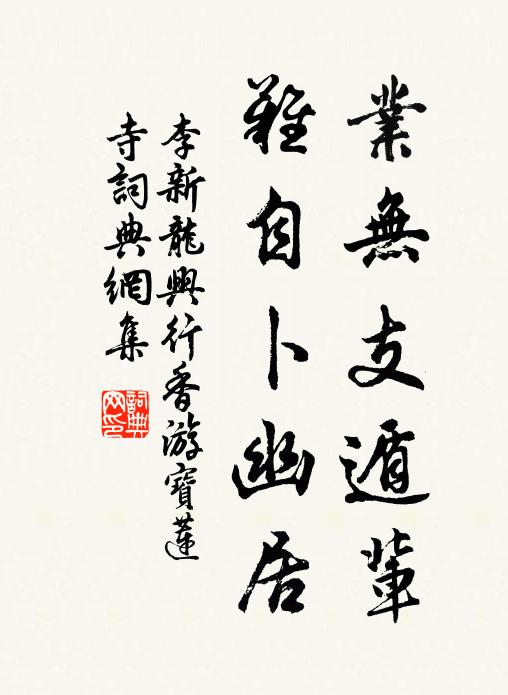 業無支遁輩
難自卜幽居
李新龍興行香游寶蓮
寺詞典網集
詞典網印